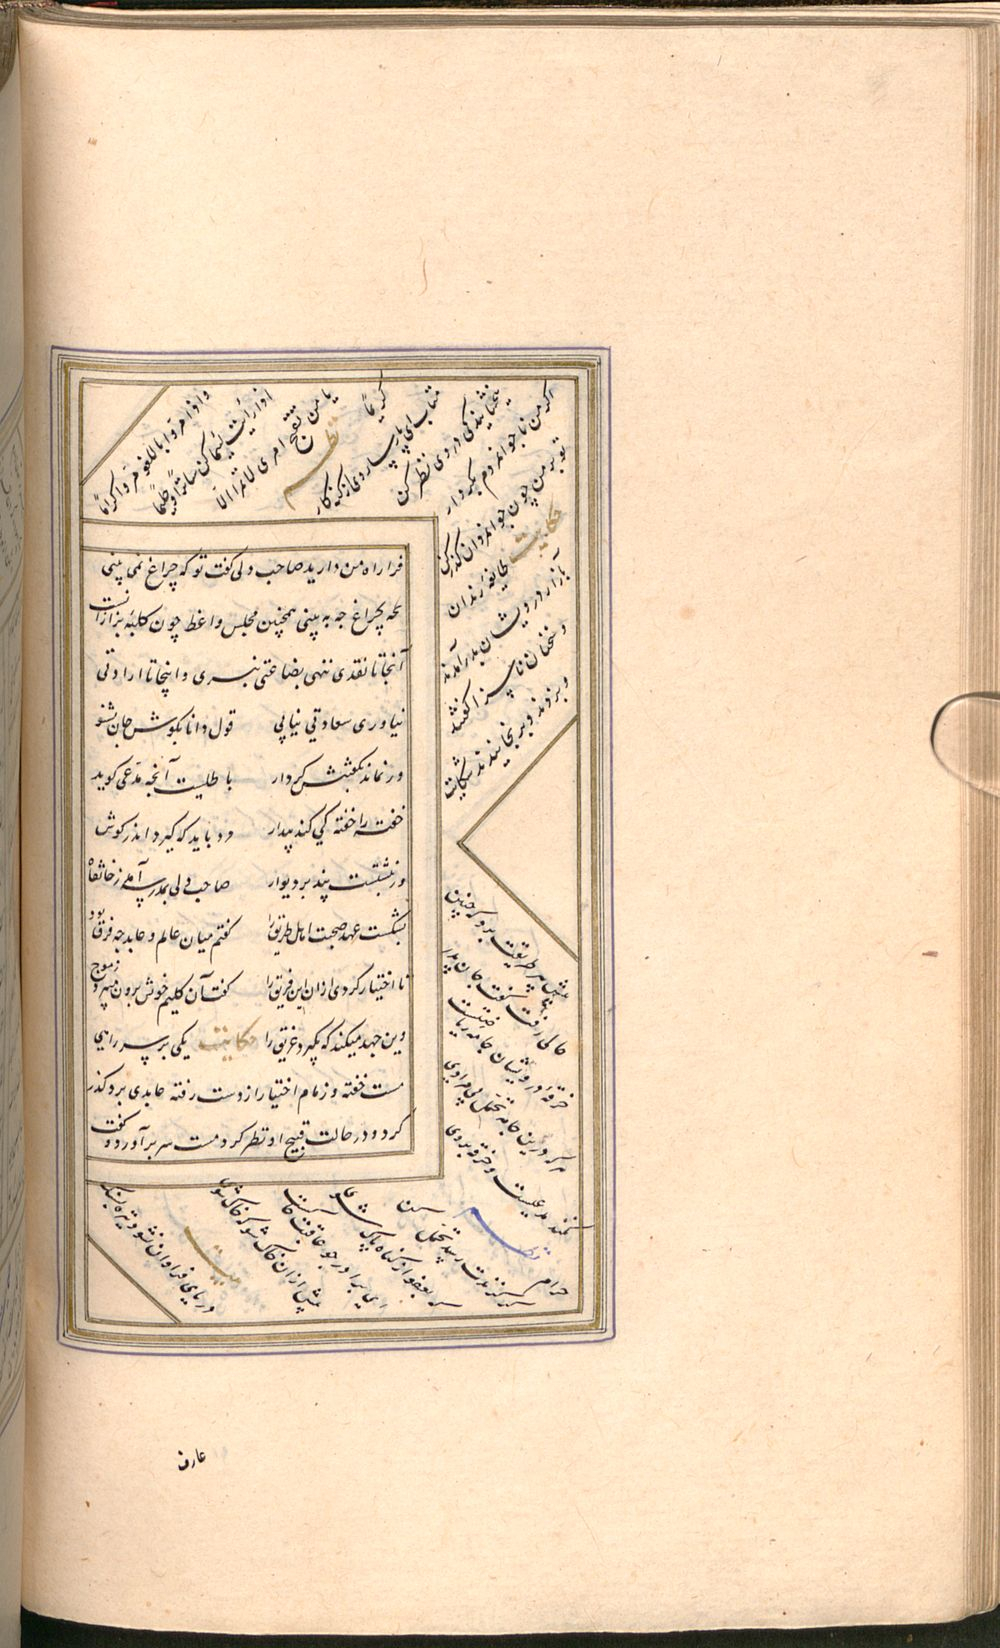 فرا راه من دارید صاحب دلی گفت تو که چراغ نمی بینی
بچراغ چه به بینی همچنین مجلس واعظ چون کلبهٔ بزازانست
آنجا تا نقدی ننهی بضاعتی نبری و اینجا تا ارادتی
نیاوری سعادتی نیابی قول دانا بگوش جان بشنو
ور نماند بگفتنش کردار باطلست آنچه مدعی گوید
خفته را خفته کی کند بیدار مرد باید که گیرد اندر گوش
ور نبشتست پند بر دیوار صاحب دلی بمدرسه آمد ز خانقاه
بشکست عهد صحبت اهل طریق را گفتم میان عالم و عابد چه فرق بود
تا اختیار کردی ازان این فریق را گفت آن گلیم خویش برون میبرد ز موج
وین جهد میکند که بگیرد غریق را حکایت یکی بر سر راهی
مست خفته و زمام اختیار از دست رفته عابدی برو گذر
کرد و در حالت قبیح او نظر کرد مست سر برآورد و گفت
و اذا مروا باللغو مروا کراما
اذا رأیت اثیما کن ساترا و حلیما
یا من تقبح امری لم لا تمر
کریما
نظم
متاب ای پارسا روی از گنهکار
ببخشایندگی در وی نظر کن
اگر من ناجوانمردم بکردار
تو بر من چون جوانمردان گذر کن
حکایت طایفهٔ رندان
بازار درویشان بدر آمدند
و سخنان ناسزا گفتند
و بزدند و برنجانیدند شکایت
پیش پیر طریقت برد که چنین
حالی رفت گفت ای جان پدر
خرقهٔ درویشان جامهٔ رضاست
هر که درین جامه تحمل بی مرادی
نکند مدعیست و خرقه برو
حرام
دریای فراوان نشود تیره بسنگ
بیت
عارف